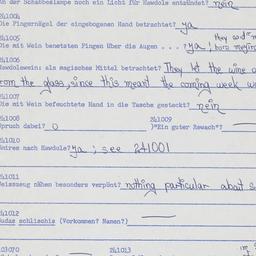 der Schabbeslampe noch ein Licht für Hawdole entzündet? nein
241004
Die Fingernägel der eingebogenen Hand betrachtet? ya
241005
Die mit Wein benetzten Fingen über die Augen . . . ? ya
241006
Hawdolewein: als magisches Mittel betrachtet? They let the wine
from the glass, since this meant the coming week
241007
Die mit Wein befeuchtete Hand in die Tasche gesteckt? nein
241008 241009
Spruch dabei? 0 )"Ein guter Rewach"?
241010
nach Hawdole? ya ; see 241001
241011
nähen besonders verpönt? nothing particular about
241012
Judas schlischis (Vorkommen? Namen?)
03070 241013